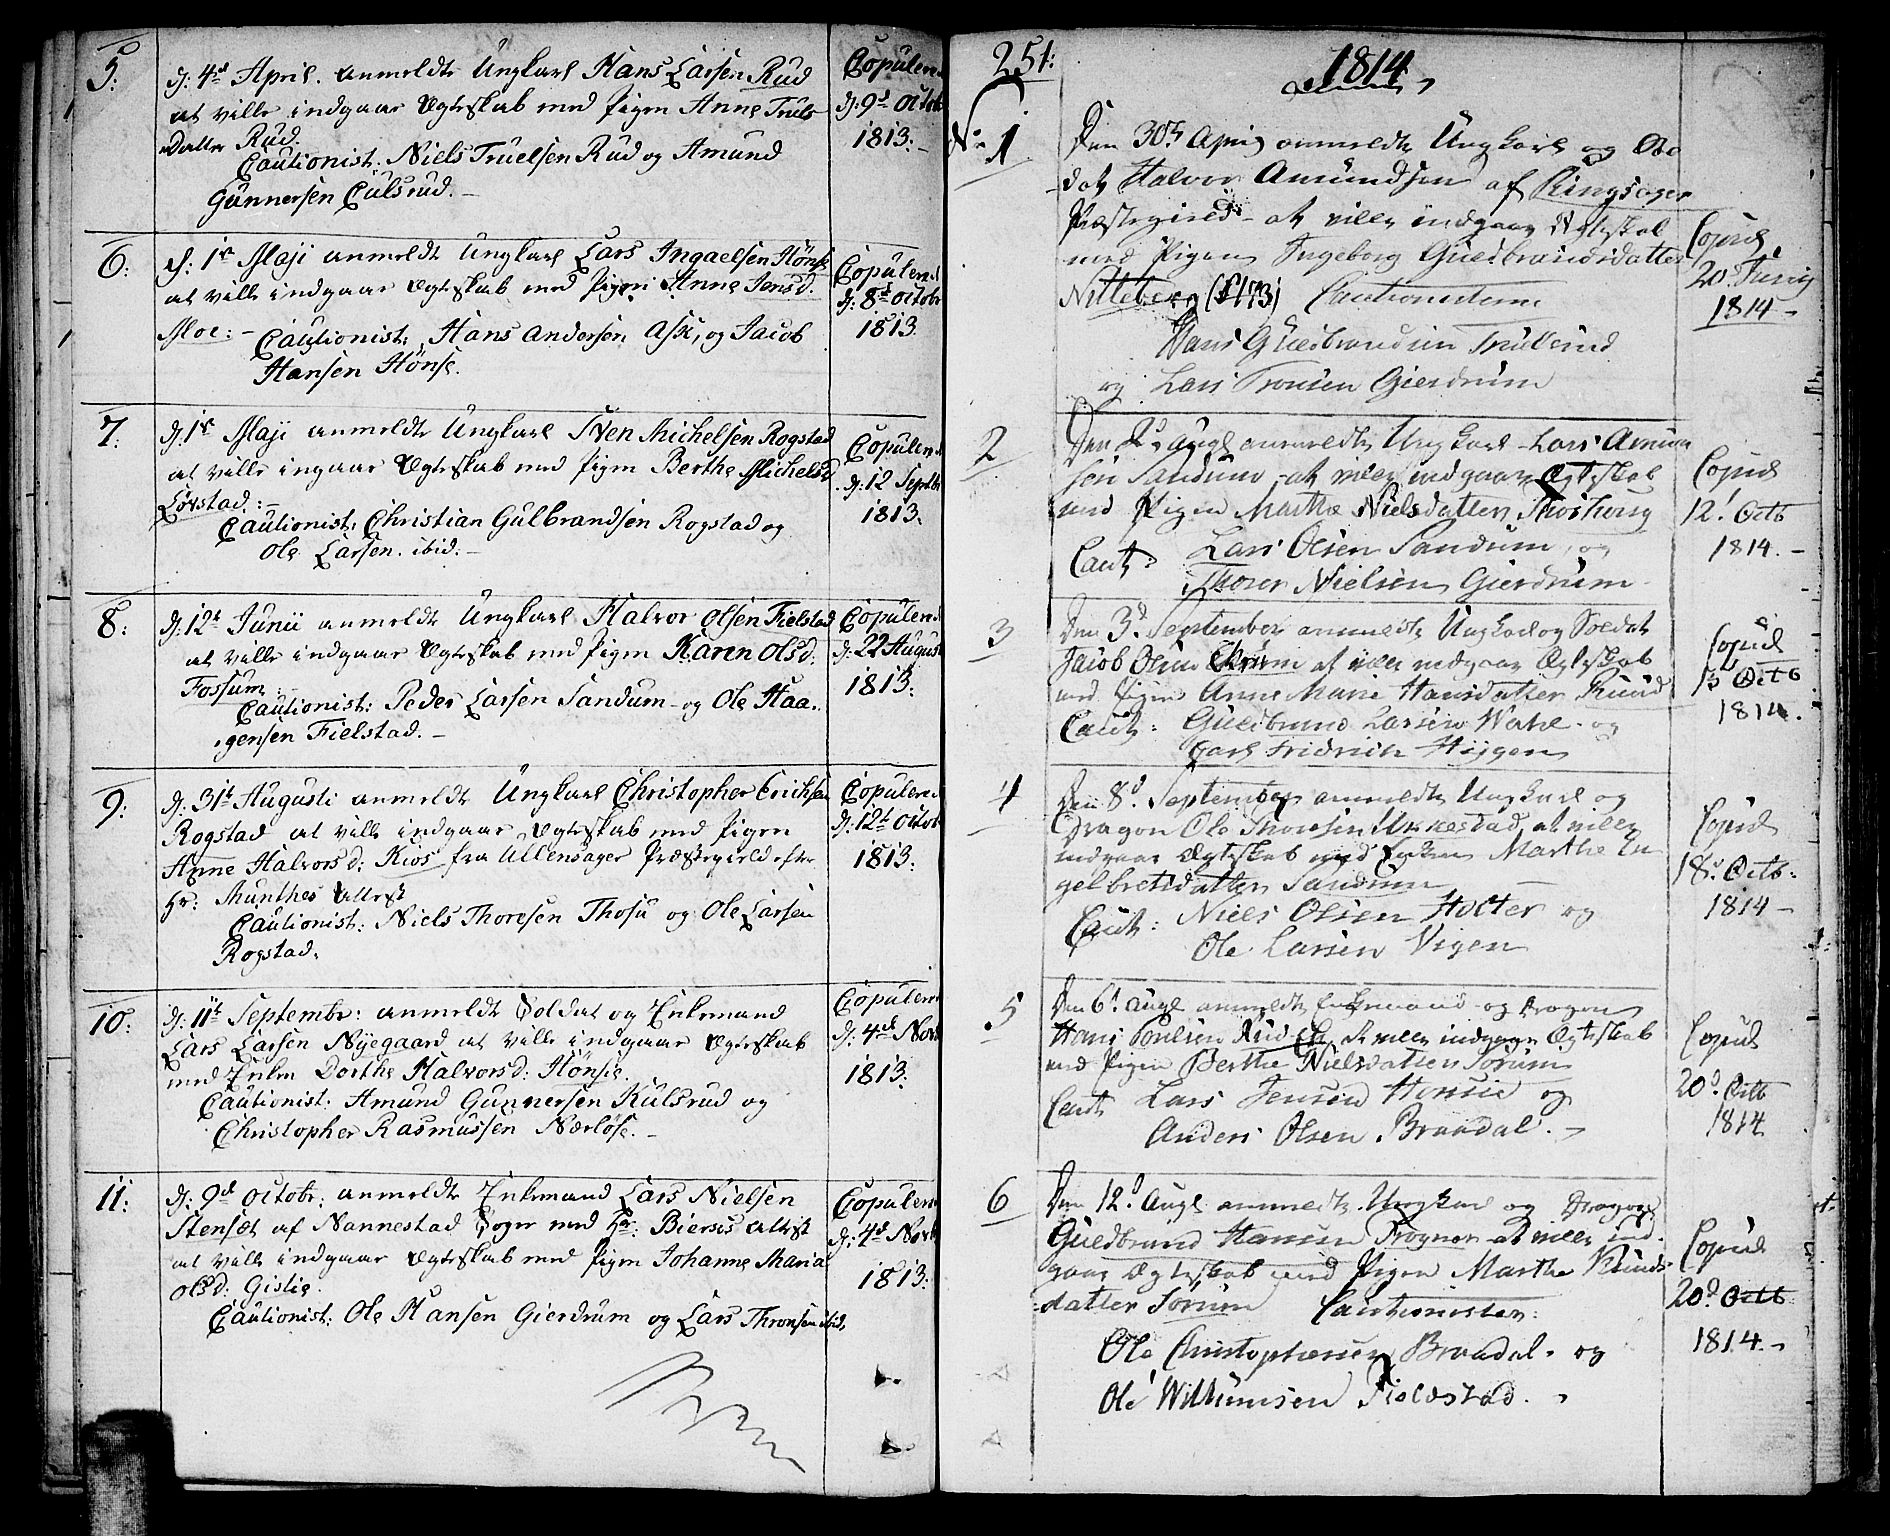 5: d: 4d April. anmeldte Ungkarl Hans Larsen Rud
at ville indgaae Ægteskab med Pigen Anne Truls
Datter Rud.
Cautionist: Niels Truelsen Rud og Amund
Gunnersen Culsrud. –
Copuleret
d: 9d Octob
1813: –
6: d: 1st Maji anmeldte Ungkarl Lars Ingaelsen Hönsie
at ville indgaae Ægteskab med Pigen Anne Jensd:
Moe: –
Cautionist: Hans Andersen Ask, og Jacob
Hansen Hönsie.
Copulered
d: 8d Octobr
1813.
7. d: 1st Maji anmeldte Ungkarl Sven Michelsen Rogstad
at ville ingaae Ægteskab med Pigen Berthe Michelsd
Lövstad: –
Cautionist: Christian Gulbrandsen Rogstad og
Ole Larsen. ibid. –
Copulered
d: 12 Septbr
1813.
8: d: 12t Junii anmeldte Ungkarl Halvor Olsen Fielstad
at ville indgaae Ægteskab med Pigen Karen Olsd:
Fossum:
Cautionist: Peder Larsen Sandum – og Ole Haa-
gensen Fielstad. –
Copulered
d: 22 August
1813:
9: d: 31t Augusti anmeldte Ungkarl Christopher Erichsen
Rogstad at ville indgaae Ægteskab med Pigen
Anne Halvorsd: Kios fra Ullensager Præstegield efter
Hr: Munthes Attest
Cautionist: Niels Thoresen Thosu og Ole Larsen
Rogstad.
Copulered
d: 12t Octob
1813.
10: d: 11t Septembr: anmeldte Soldat og Enkemand
Lars Larsen Nyegaard at ville indgaae Ægteskab
med Enken Dorthe Halvorsd: Hönsie.
Cautionist: Amund Gunnersen Kulsrud og
Christopher Rasmussen Nærlöse. –
Copulered
d: 4d Nov
1813:
11: d: 9d Octobr: anmeldte Enkemand Lars Nielsen
Stenset af Nannestad Sogn med Hr: Biersis Attest
at ville indgaae Ægteskab med Pigen Johanne Maria
Olsd: Gislie.
Cautionist: Ole Hansen Gierdrum og Lars Thronsen ibid.
Copulered
d: 4d Novb
1813:
251:
1814
No 1 Den 30th April anmeldte Ungkarl og
Halvor Amundsen af Ringsager
Præstegield – at ville indgaae Ægteskab
med Pigen Ingeborg Guldbrandsdatter
Nitteberg Cautionisterne
Hans Guldbrandsen Trulserud
og Lars Tronsen Gierdrum
Copul
20. Junij
1814 –
2 Den 2d Augl anmeldte Ungkarl Lars Amun
sen Sandum – at ville indgaae Ægteskab
med Pigen Marthe Nielsdatter
Caut: Lars Olsen Sandum, og
Thorer Nielsen Gierdrum
Copul
12t Octb
1814. –
3 Den 3d September anmeldte Ungkarl og Soldat
Jacob Olsen at ville indgaae Ægteskab
med Pigen Anne Marie Hansdatter Ruud
Caut: Guldbrand Larsen Wahl – og
Carl Fridrich Hiigen
Copul
13 Octb
1814.
4 Den 8d September anmeldte Ungkarl og
Dragon Ole Thoresen Ukkestad at ville
indgaae Ægteskab med Enken Marthe En
gelbretsdatter Sandum
Caut: Niels Olsen Holter og
Ole Larsen Vigen
Copul
18d Octb:
1814 –
5 Den 6t Augl anmeldte Enkemand og Dragon
Hans Poulsen Rud at ville indgaae Ægteskab
med Pigen Berthe Nielsdatter Sörum
Caut Lars Jensen Honsie og
Anders Olsen Braadal. –
Copul
20d Octb
1814
6 Den 12d Augl anmeldte Ungkarl og Dragon
Guldbrand Hansen Frogner at ville ind-
gaae Ægteskab med Pigen Marthe Knuds-
datter Sörum Cautionister:
Ole Christophersen Braadal. og
Ole Willumsen Fieldstad.
Copul
20d Octb
1814. –